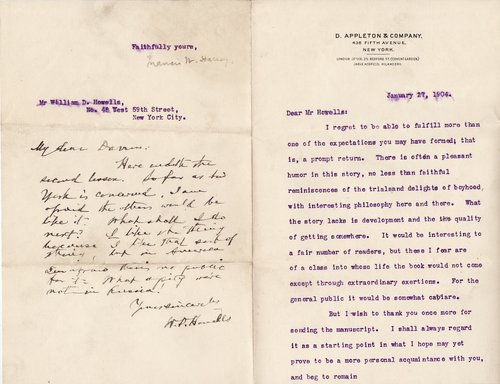 Faithfully yours,
Francis W. Halsey
Mr William D. Howells,
No. 48 West 59th Street,
New York City.
My dear Darrow:
Here endeth the
second lesson. So far as New
York is concerned, I am
afraid the others would be
like it. What shall I do
next? I like the thing
because I like that sort of
thing, but in America
I'm afraid there's no public
for it. What a pity we're
not in Russia!
Yours sincerely
W. D. Howells
D. APPLETON & COMPANY,
436 FIFTH AVENUE,
NEW YORK.
January 27, 1904.
Dear Mr Howells:
I regret to be able to fulfill more than
one of the expectations you may have formed; that
is, a prompt return. There is often a pleasant
humor in this story, no less than faithful
reminiscences of the trialsand delights of boyhood,
with interesting philosophy here and there. What
the story lacks is development and the quality
of getting somewhere. It would be interesting to
a fair number of readers, but these I fear are
of a class into whose life the book would not come
except through extraordinary exertions. For the
general public it would be somewhat caviare.
But I wish to thank you once more for
sending the manuscript. I shall always regard
it as a starting point in what I hope may yet
prove to be a more personal acquaintance with you,
and beg to remain